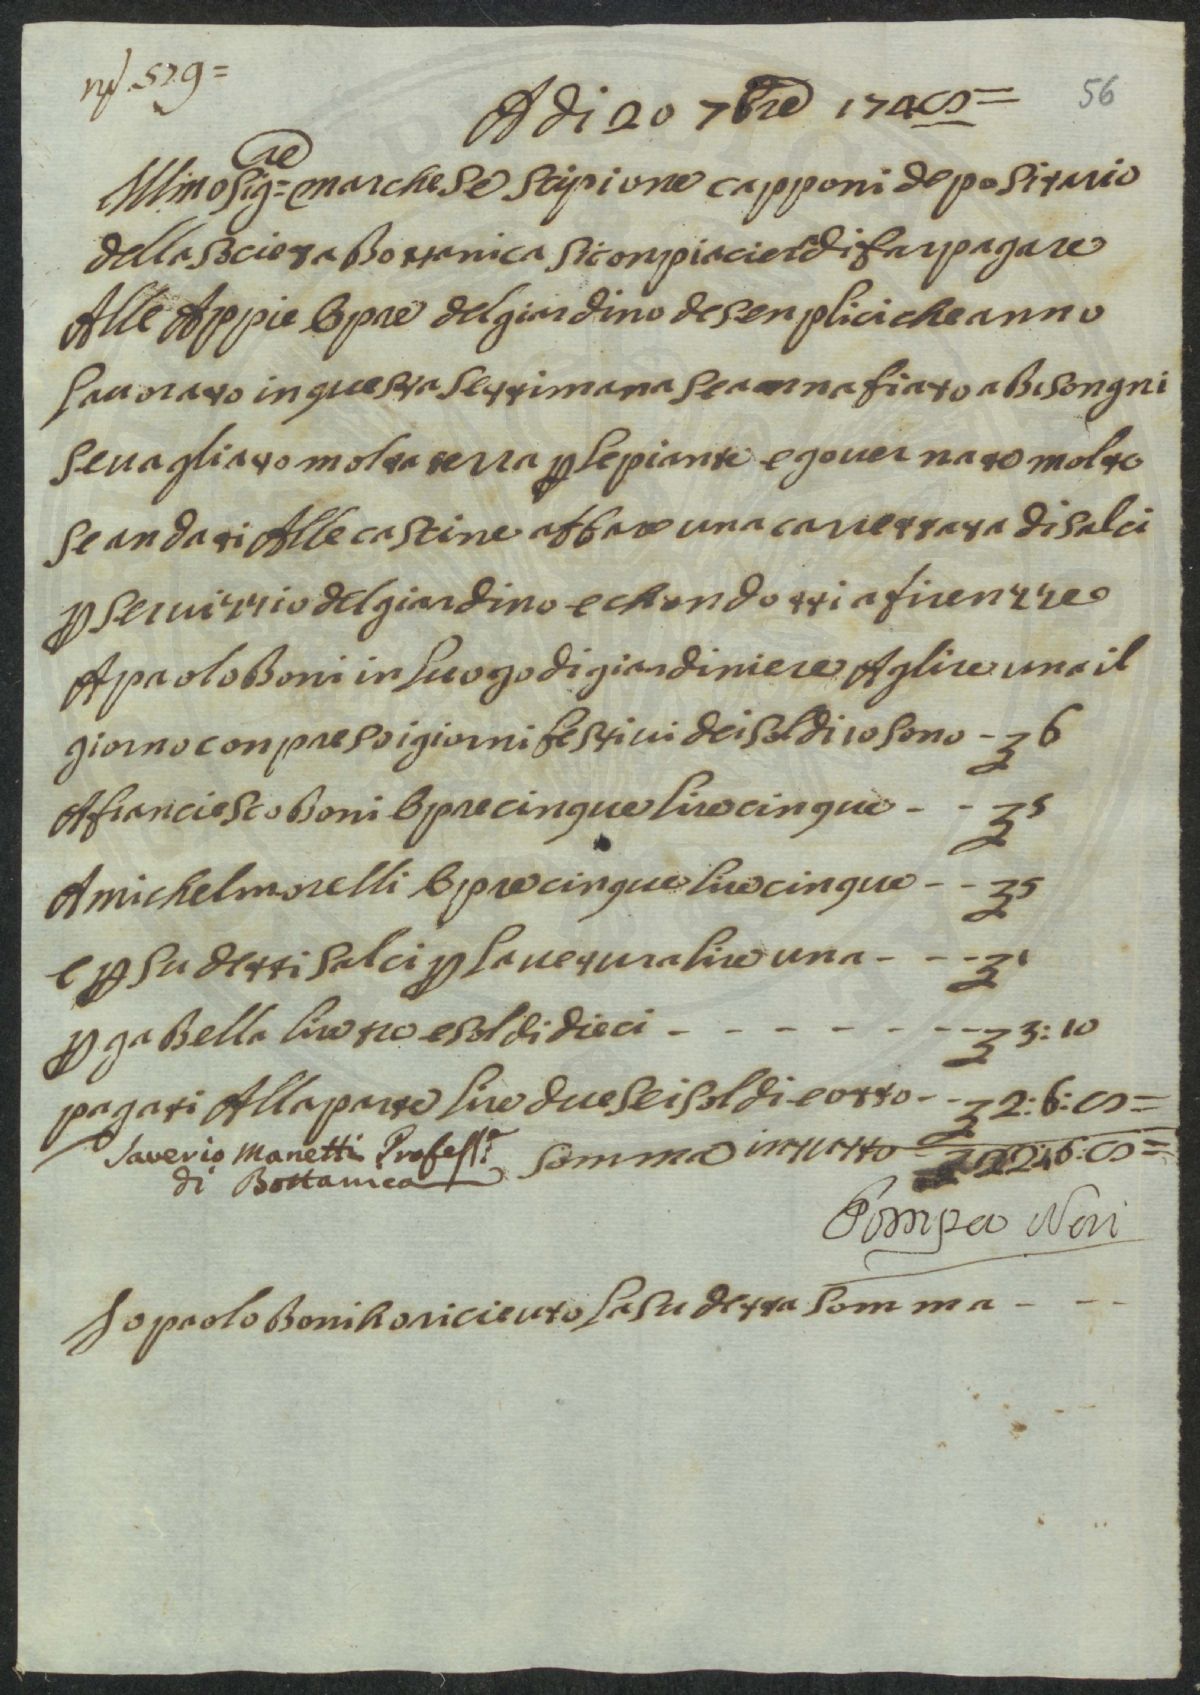 n° 529=
56
A di 20 7bre 1748=
Illmo Sig=re marchese Scipione capponi depositario
della Societa Bottanica si conpiacierà di far pagare
Alle Appie Opre del giardino de senplici che anno
lavorato in questa settimana se annafiato a Bisongni
se vagliato molta terra p le piante e governato molto
se andati Alle cascine affare una carrettata di salci
p servizzio del giardino e chondotti a firenzze
A paolo Boni in luogo di giardiniere A lire una il
giorno conpreso i giorni festivi dei soldi 10 sono - 6
A franciesco Boni Opre cinque lire cinque - - 5
A michel morelli Opre cinque lire cinque - - 5
e p su detti salci p la vetura lire una - - - 1
p gaBella lire tre e soldi dieci - - - - - - - - 3: 10
pagati Alla parte lire due sei soldi e otto - - 2: 6: 8=
Saverio Manetti Profess:e
di Bottanica
Somma in tutto 22: 6: 8=
Pompeo Neri
Io paolo Boni ho ricieuto la su detta somma - - -